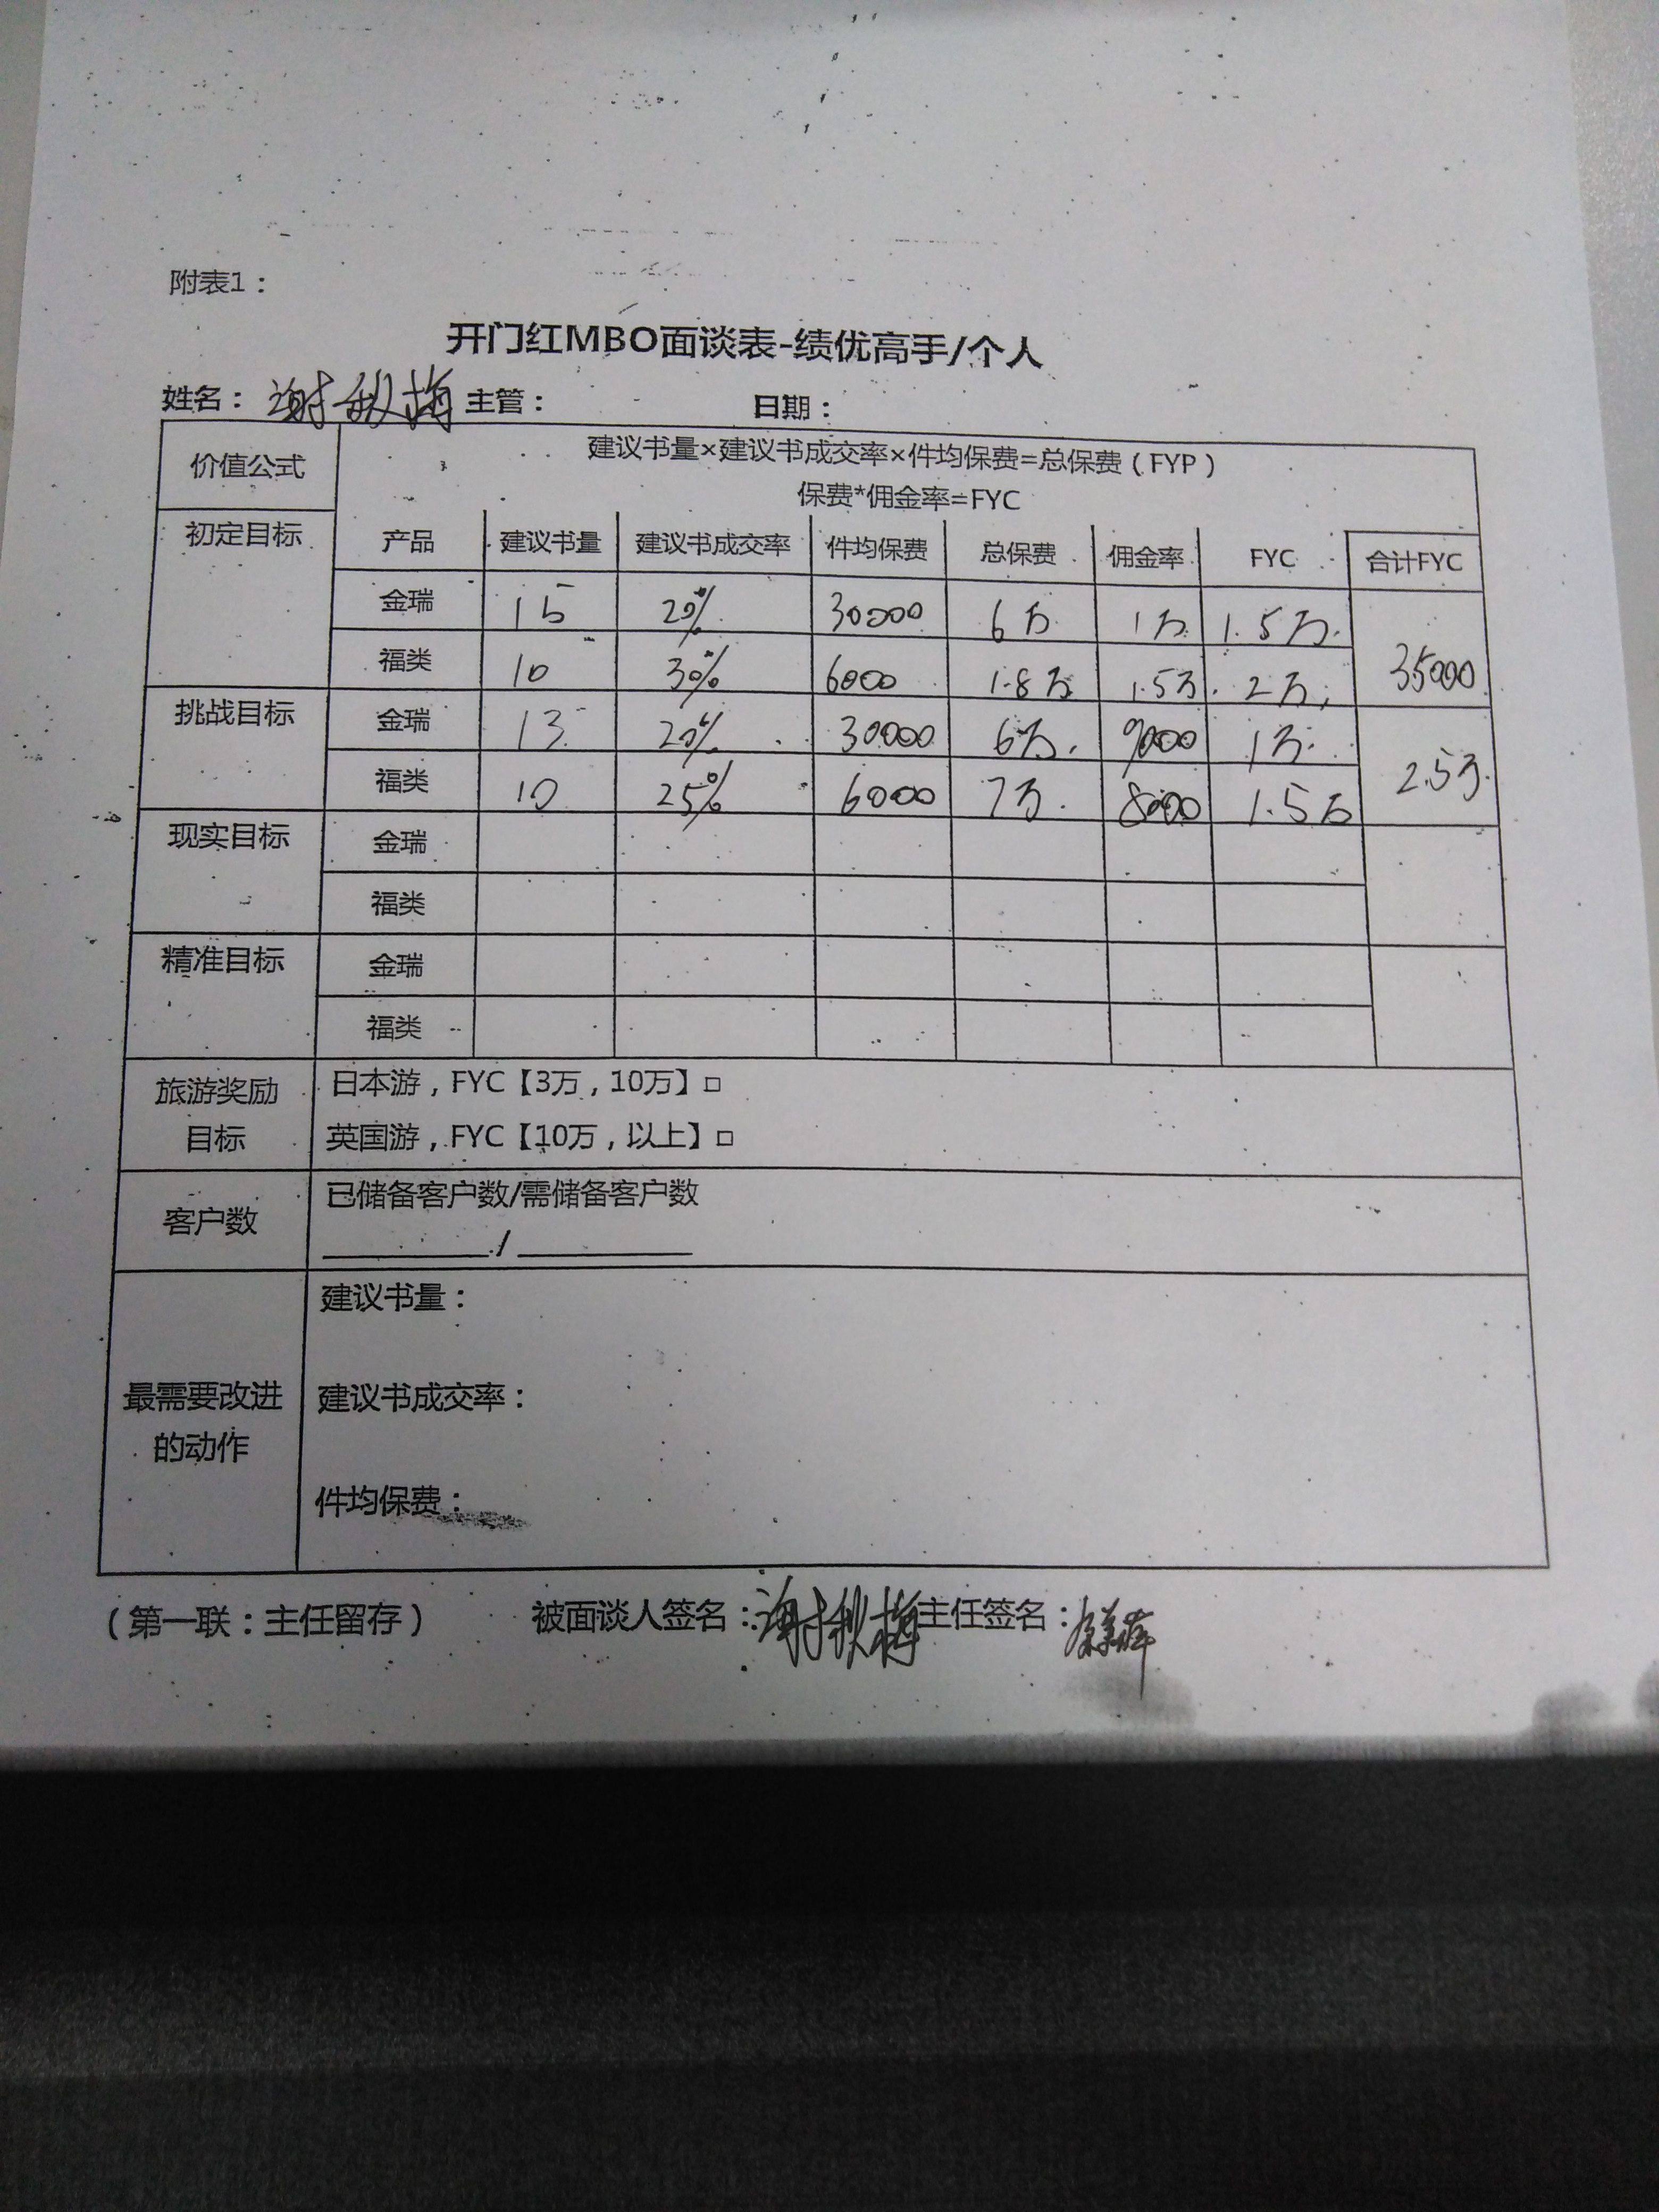 附表1：
开门红MBO面谈表-绩优高手/个人
姓名：谢秋梅 主管： 日期：
价值公式 建议书量×建议书成交率×件均保费=总保费（FYP）
保费*佣金率=FYC
初定目标 产品 建议书量 建议书成交率 件均保费 总保费 佣金率 FYC 合计FYC
金瑞 15 20% 30000 6万 1万 1.5万.
福类 10 30% 6000 1.8万 1.5万. 2万. 35000
挑战目标 金瑞 13 20% 30000 6万. 9000 1万.
福类 10 25% 6000 7万. 8000 1.5万 2.5万.
现实目标 金瑞
福类
精准目标 金瑞
福类
旅游奖励目标 日本游，FYC【3万，10万】□
英国游，FYC【10万，以上】□
客户数 已储备客户数/需储备客户数
/
最需要改进的动作 建议书量：
建议书成交率：
件均保费：
（第一联：主任留存） 被面谈人签名：谢秋梅 主任签名：